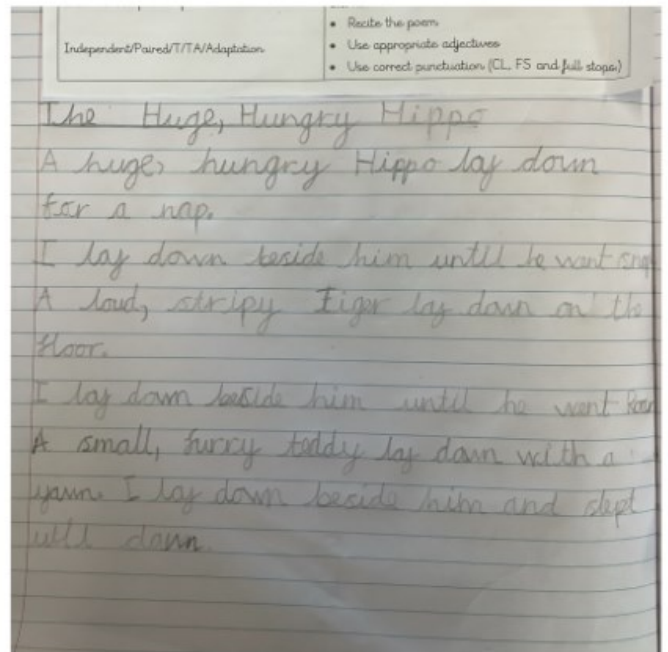 • Recite the poem
Independent/Paired/T/TA/Adaptation
• Use appropriate adjectives
• Use correct punctuation (CL, FS and full stops)
The Huge, Hungry Hippo
A huge, hungry Hippo lay down
for a nap.
I lay down beside him until he want
A loud, stripy Tiger lay down on the
floor.
I lay down beside him until he went
A small, furry teddy lay down with a
yawn. I lay down beside him and slept
until dawn.